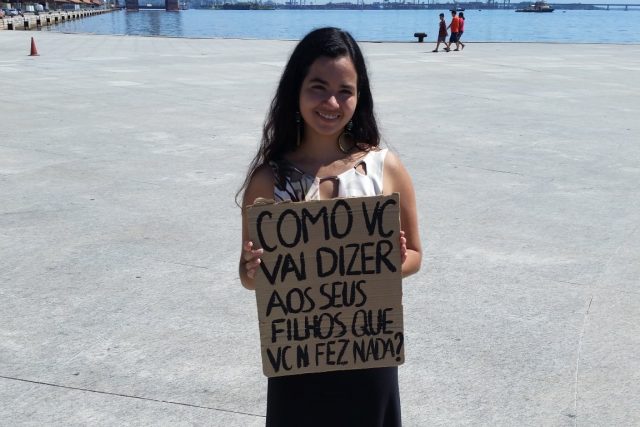 COMO VC
VAI DIZER
AOS SEUS
FILHOS QUE
VC N FEZ NADA?